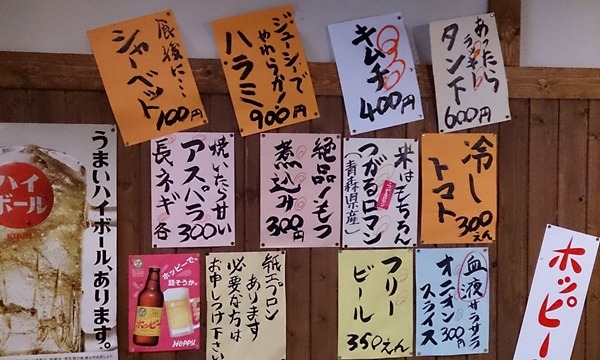 最後に…
シャーベット
100円
ジューシィで
やわらか!
ハラミ
900円
キムチ
400円
あったら
ラッキー!
タン下
600円
焼いたら甘い
アスパラ
長ネギ
300
絶品!もつ
煮込み
300円
米はもちろん
つがるロマン
(青森県産)
冷し
トマト
300えん
うまいハイボール、あります。
ハイ
ボール
ホッピーで、
話そうか。
ホッピー
HOPPY
紙エプロン
あります
必要な方は
お申しつけ下さい
フリー
ビール
350えん
血液サラサラ
オニオン
スライス
300円
ホッピー